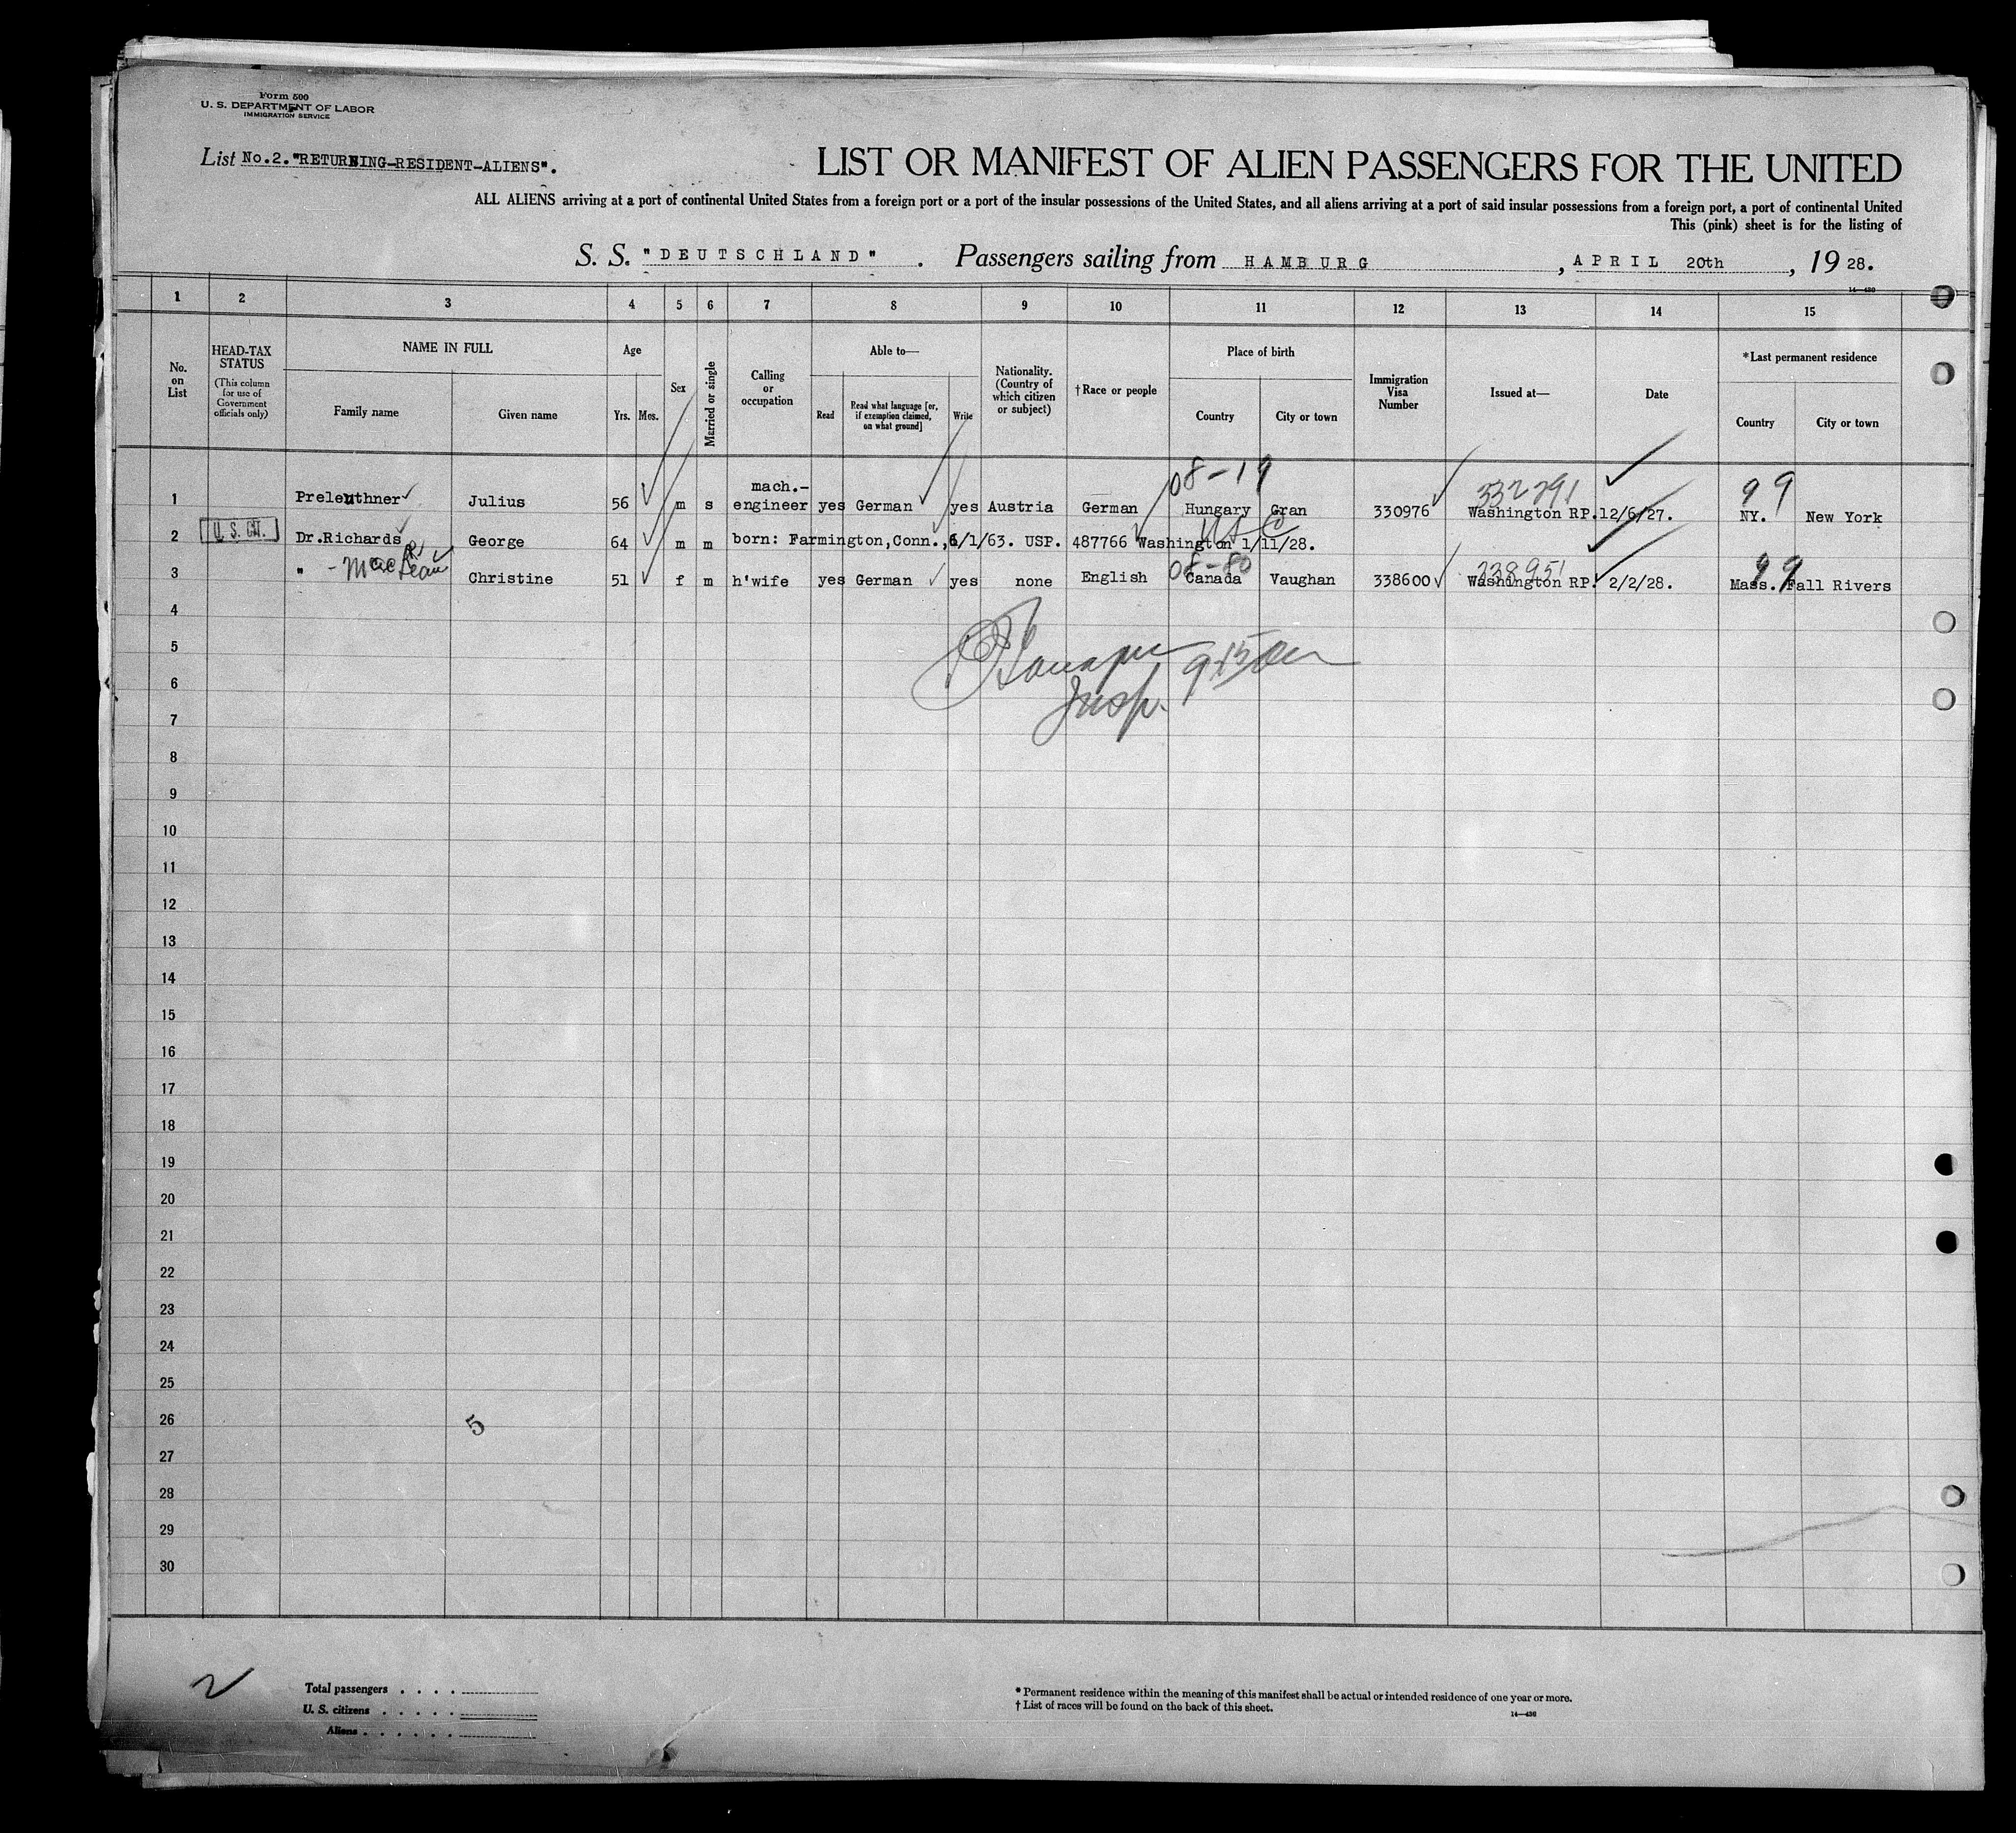 Form 500
U. S. DEPARTMENT OF LABOR
IMMIGRATION SERVICE
List No.2."RETURNING-RESIDENT-ALIENS".
LIST OR MANIFEST OF ALIEN PASSENGERS FOR THE UNITED
ALL ALIENS arriving at a port of continental United States from a foreign port or a port of the insular possessions of the United States, and all aliens arriving at a port of said insular possessions from a foreign port, a port of continental United
This (pink) sheet is for the listing of
S. S. "DEUTSCHLAND" . Passengers sailing from HAMBURG , APRIL 20th , 19 28.
14—430
1 2 3 4 5 6 7 8 9 10 11 12 13 14 15
No. on List
HEAD-TAX STATUS
(This column for use of Government officials only)
NAME IN FULL
Family name Given name
Age
Yrs. Mos.
Sex
Married or single
Calling or occupation
Able to—
Read
Read what language [or, if exemption claimed, on what ground]
Write
Nationality. (Country of which citizen or subject)
†Race or people
Place of birth
Country City or town
Immigration Visa Number
Issued at—
Date
*Last permanent residence
Country City or town
08-19 332291 99
1 Preleuthner Julius 56 m s mach.-engineer yes German yes Austria German Hungary Gran 330976 Washington RP. 12/6/27. NY. New York
US C
2 U. S. CIT. Dr.Richards George 64 m m born: Farmington,Conn.,6/1/63. USP. 487766 Washington 1/11/28.
08-80 238951 99
3 " - MacLean Christine 51 f m h'wife yes German yes none English Canada Vaughan 338600 Washington RP. 2/2/28. Mass. Fall Rivers
4
5
9.15 am
6
Insp.
7
8
9
10
11
12
13
14
15
16
17
18
19
20
21
22
23
24
25
26
5
27
28
29
30
2
Total passengers . . . .
U. S. citizens . . . . .
Aliens . . . . . .
* Permanent residence within the meaning of this manifest shall be actual or intended residence of one year or more.
† List of races will be found on the back of this sheet.
14—430